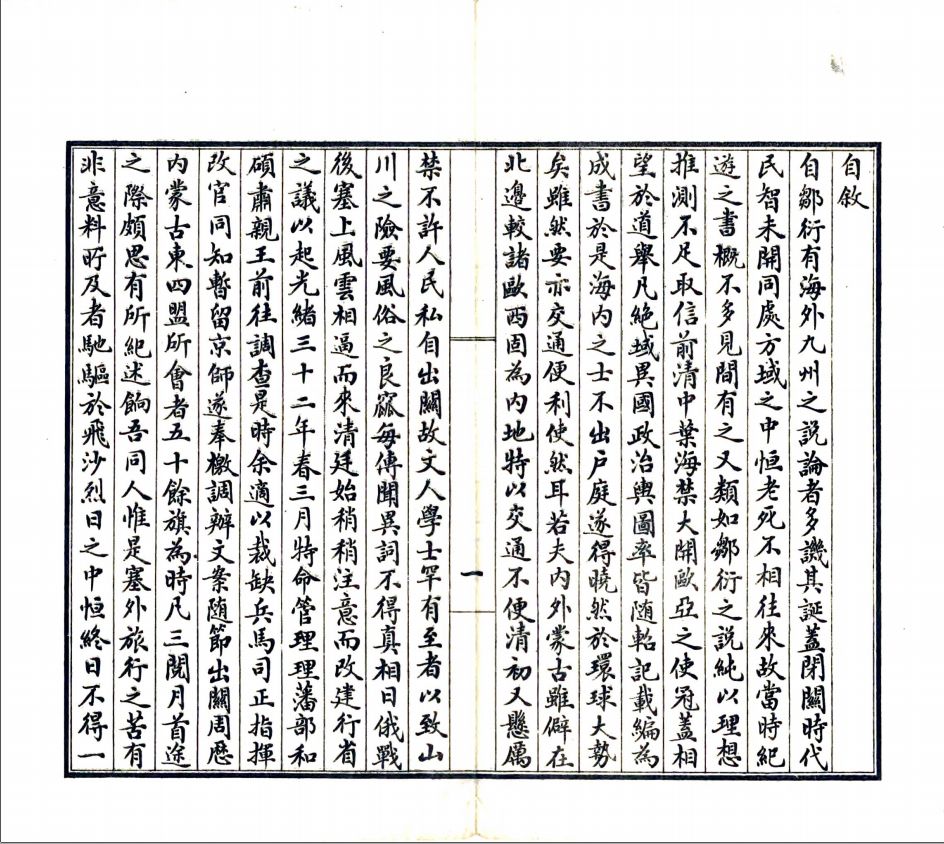 自敘
自鄒衍有海外九州之說論者多譏其誕蓋閉關時代
民智未開同處方域之中恒老死不相往來故當時紀
遊之書概不多見間有之又類如鄒衍之說純以理想
推測不足取信前清中葉海禁大開歐亞之使冠蓋相
望於道舉凡絕域異國政治輿圖率皆随軺記載編為
成書於是海內之士不出户庭遂得曉然於環球大勢
矣雖然要亦交通便利使然耳若夫內外蒙古雖僻在
北邊較諸歐西固為內地特以交通不便清初又懸厲
一
禁不許人民私自出關故文人學士罕有至者以致山
川之險要風俗之良窳每傳聞異詞不得真相日俄戰
後塞上風雲相逼而來清廷始稍稍注意而改建行省
之議以起光緒三十二年春三月特命管理理藩部和
碩肅親王前往調查是時余適以裁缺兵馬司正指揮
改官同知暫留京師遂奉檄調辦文案随節出關周歷
內蒙古東四盟所會者五十餘旗為時凡三閱月首途
之際頗思有所紀述餉吾同人惟是塞外旅行之苦有
非意料所及者馳驅於飛沙烈日之中恒終日不得一